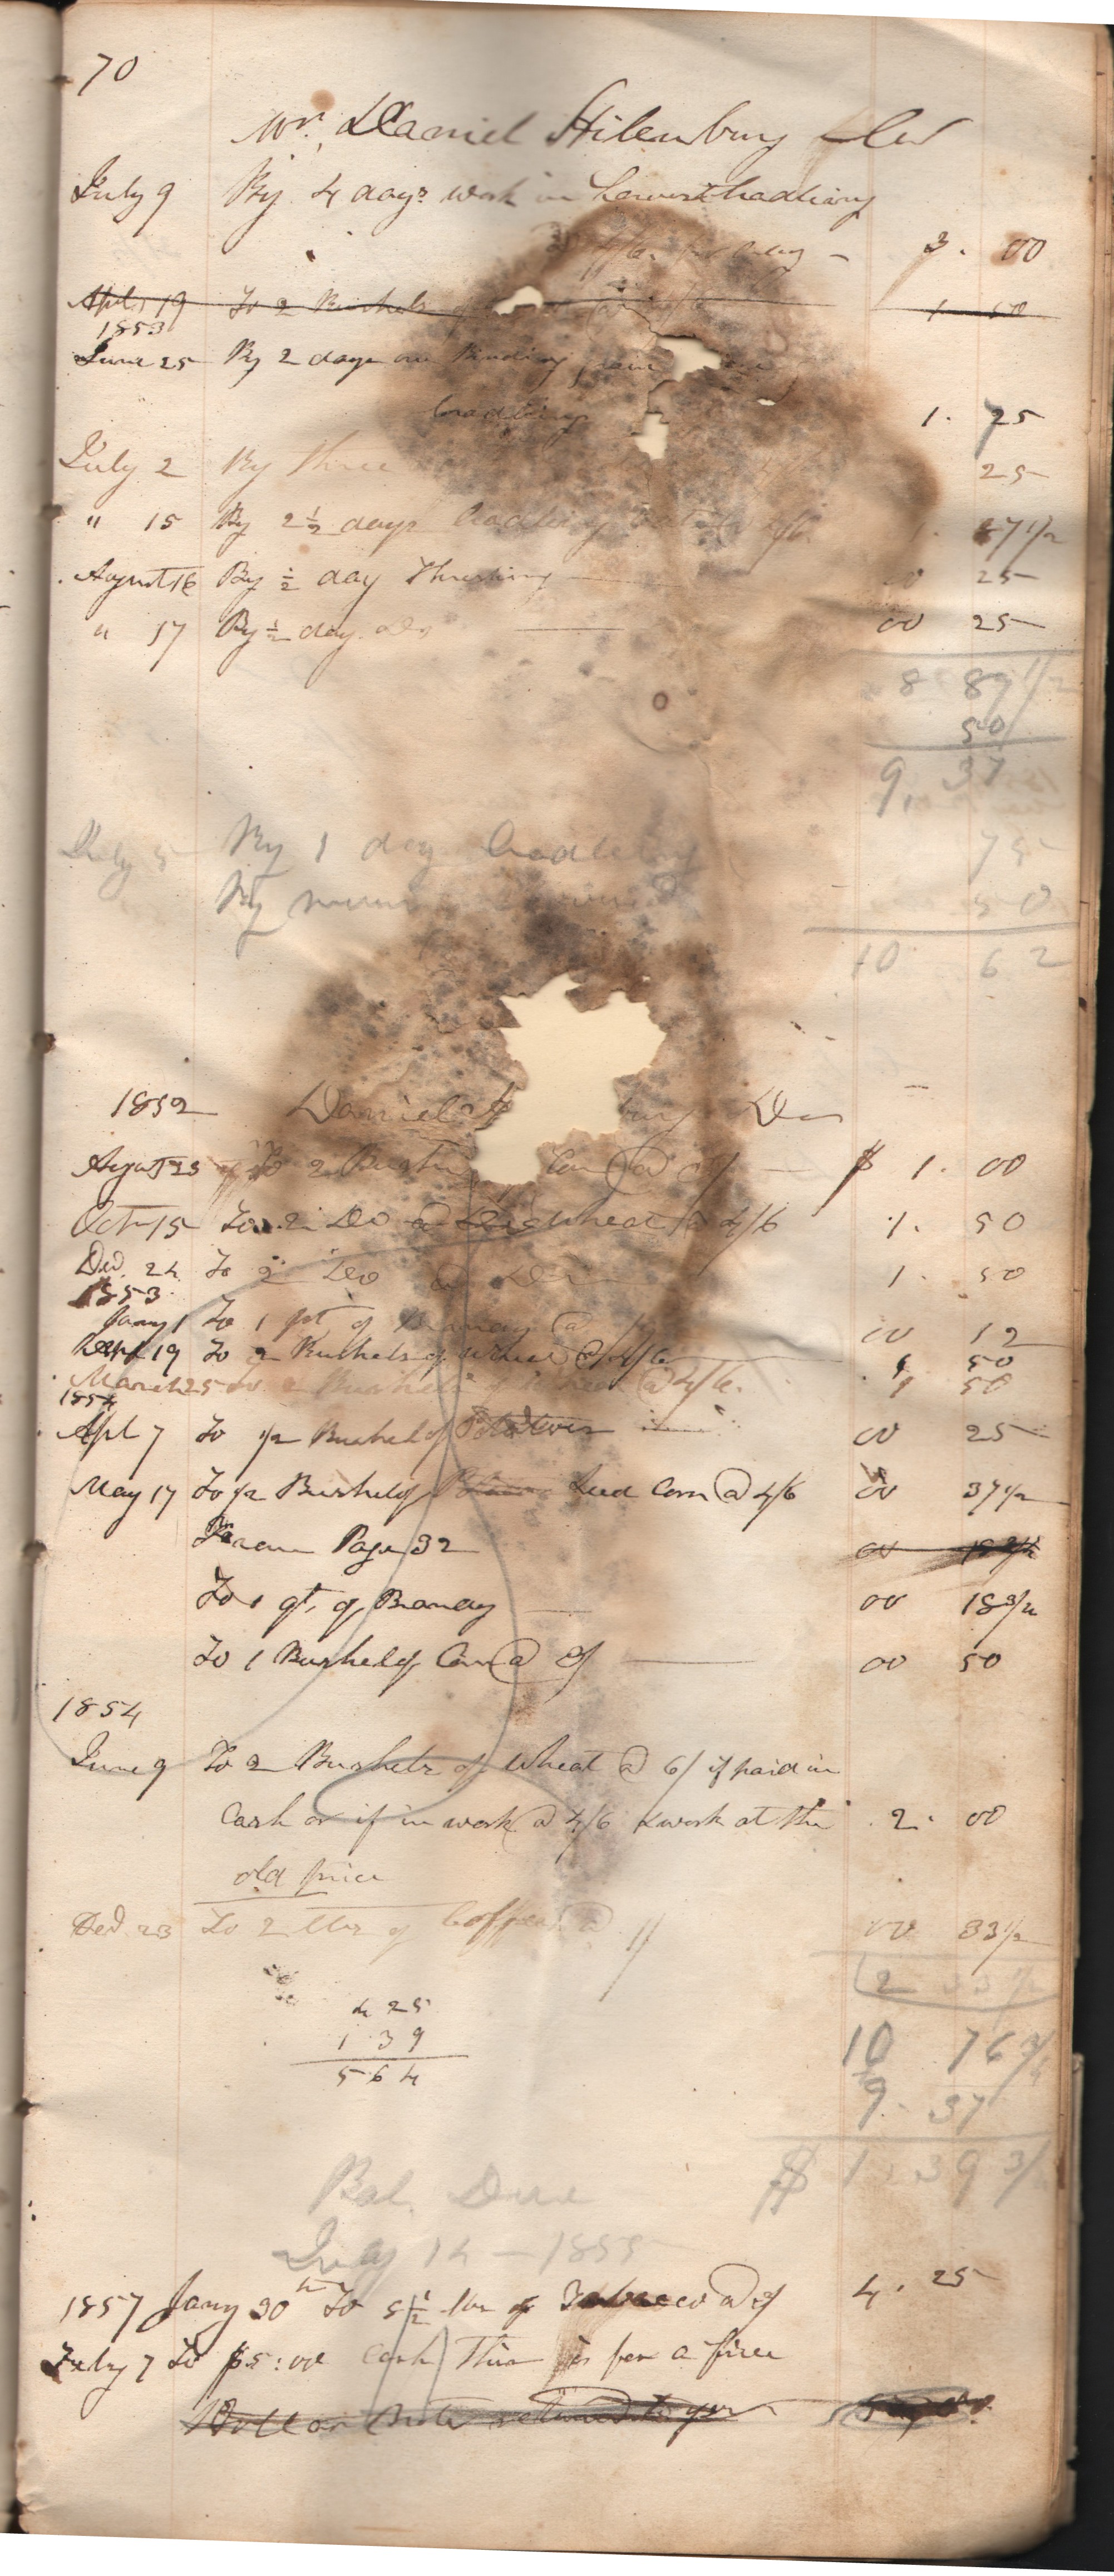 70
Mr. Daniel Hilenburg Cr
July 9 By 4 days work in
3. 00
Apl. 19 To 2 Bushels 1 50
1853
June 25 By 2 days on Binding
Cradling 1. 25
July 2 By three 25
" 15 By 2 1/2 days Cradling 87 1/2
August 16 By 1/2 day Thrashing 00 25
" 17 By 1/2 day Do 00 25
8 87 1/2
50
9. 37
July 5 By 1 day Cradling 75
By 50
10 62
1852 Daniel burg Dr
August 23 To 2 Corn @ $ 1. 00
Oct 15 To 2 Do @ Wheat @ 4/6 1. 50
Ded. 24 To 2 Do @ 1. 50
1853
Jany 1 To 1 pt of Brandy @ 00 12
19 To 2 Bushels of wheat @ 4/6 1 50
March 25 to 2 Bushels of @ 4/6. 1 50
1854
Apl 7 To 1/2 Bushel of Potatoes 00 25
May 17 To 1/2 Bushel of Seed Corn @ 4/6 00 37 1/2
From Page 32 00 18 3/4
To 1 qt. of Brandy 00 18 3/4
To 1 Bushel of Corn @ 00 50
1854
June 9 To 2 Bushels of Wheat @ 6/ if paid in
Cash or if in work @ 4/6 & work at the 2. 00
old price
Ded 23 To 2 lbs of Coffee @ 1/ 00 33 1/2
2 33 1/2
4 25
1 39
5 64
10 76 3/4
9. 37
$ 1. 39 3/
Bal. Due
July 14 — 1855
1857 Jany 30th To 8 1/2 lbs of Tobacco @ 4. 25
July 7 To $5:00 Cash This is for a five
Dollar Note returned to you